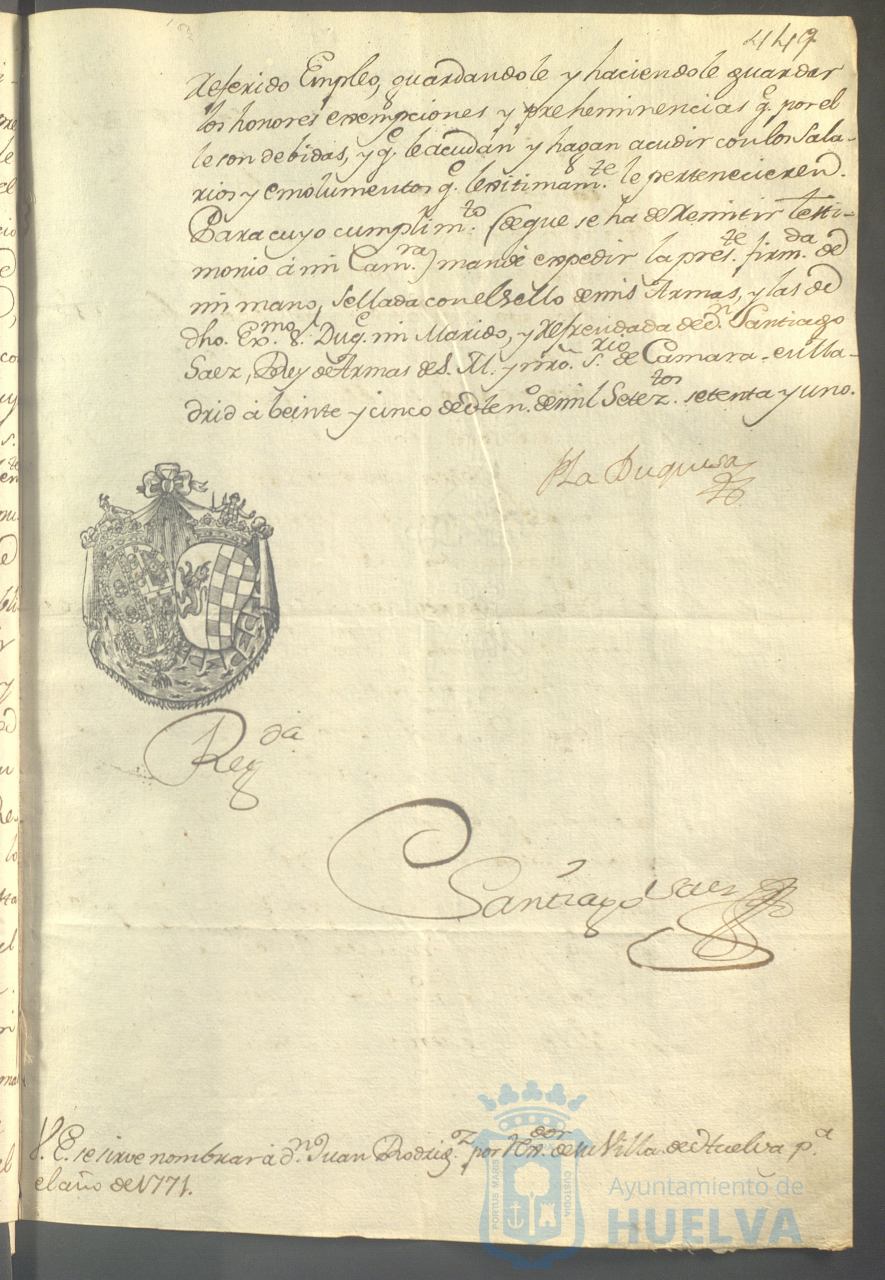 449
referido Empleo, guardandole y haciendole guardar
los honores exempciones y preheminencias q.e por el
le son debidas, y q.e le acudan y hagan acudir con los Sala-
rios y emolumentos q.e lexitimam.te le pertenecieren.
Para cuyo cumplim.to (de que se ha de remitir testi-
monio á mi Cam.ra) mandé expedir la pres.te firm.da de
mi mano, sellada con el sello de mis Armas, y las de
dho. Ex.mo S. Duq.e mi Marido, y refrendada de d.n Santiago
Saez, Rey de Armas de S. M. y nrõ. S.rio de Camara. en Ma-
drid á beinte y cinco de de mil Setez.tos setenta y uno.
La Duquesa
Reg.da
Santiago Saez
V. E. se sirve nombrar á d.n Juan Rodrig.z por de su Villa de Huelva p.a
el año de 1771.
PORTUS MARIS
CUSTODIA
Ayuntamiento de
HUELVA